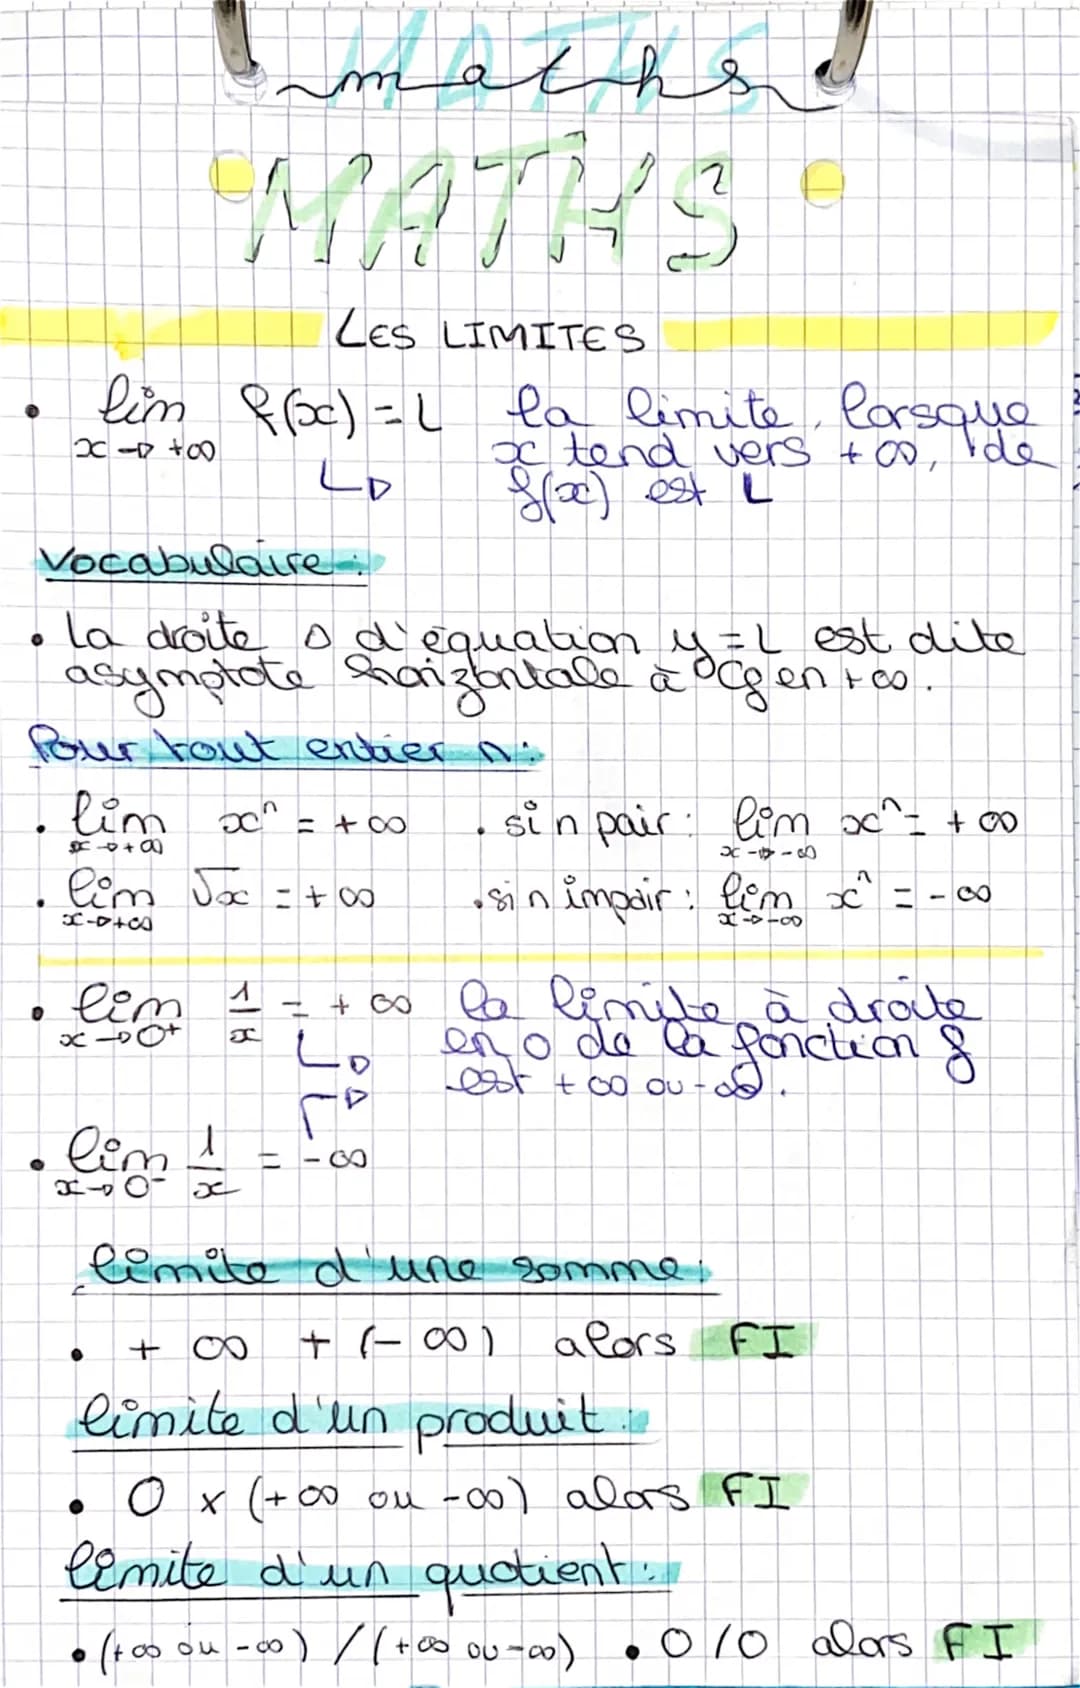 MATHS
maths
MATHS
LES LIMITES
• lim f(x) = L la limite, lorsque
x → +∞ x tend vers +∞, de
↳ f(x) est L
Vocabulaire :
• La droite D d'équation y = L est dite
asymptote horizontale à Cf en +∞.
Pour tout entier n :
• lim xⁿ = +∞ • si n pair : lim xⁿ = +∞
x → +∞ x → -∞
• lim √x = +∞ • si n impair : lim xⁿ = -∞
x → +∞ x → -∞
• lim 1/x = +∞ la limite à droite
x → 0⁺ ↳ en 0 de la fonction f
est +∞ ou -∞.
• lim 1/x = -∞
x → 0⁻
limite d'une somme :
• +∞ + (-∞) alors FI
limite d'un produit :
• 0 x (+∞ ou -∞) alors FI
limite d'un quotient :
• (+∞ ou -∞) / (+∞ ou -∞) • 0/0 alors FI